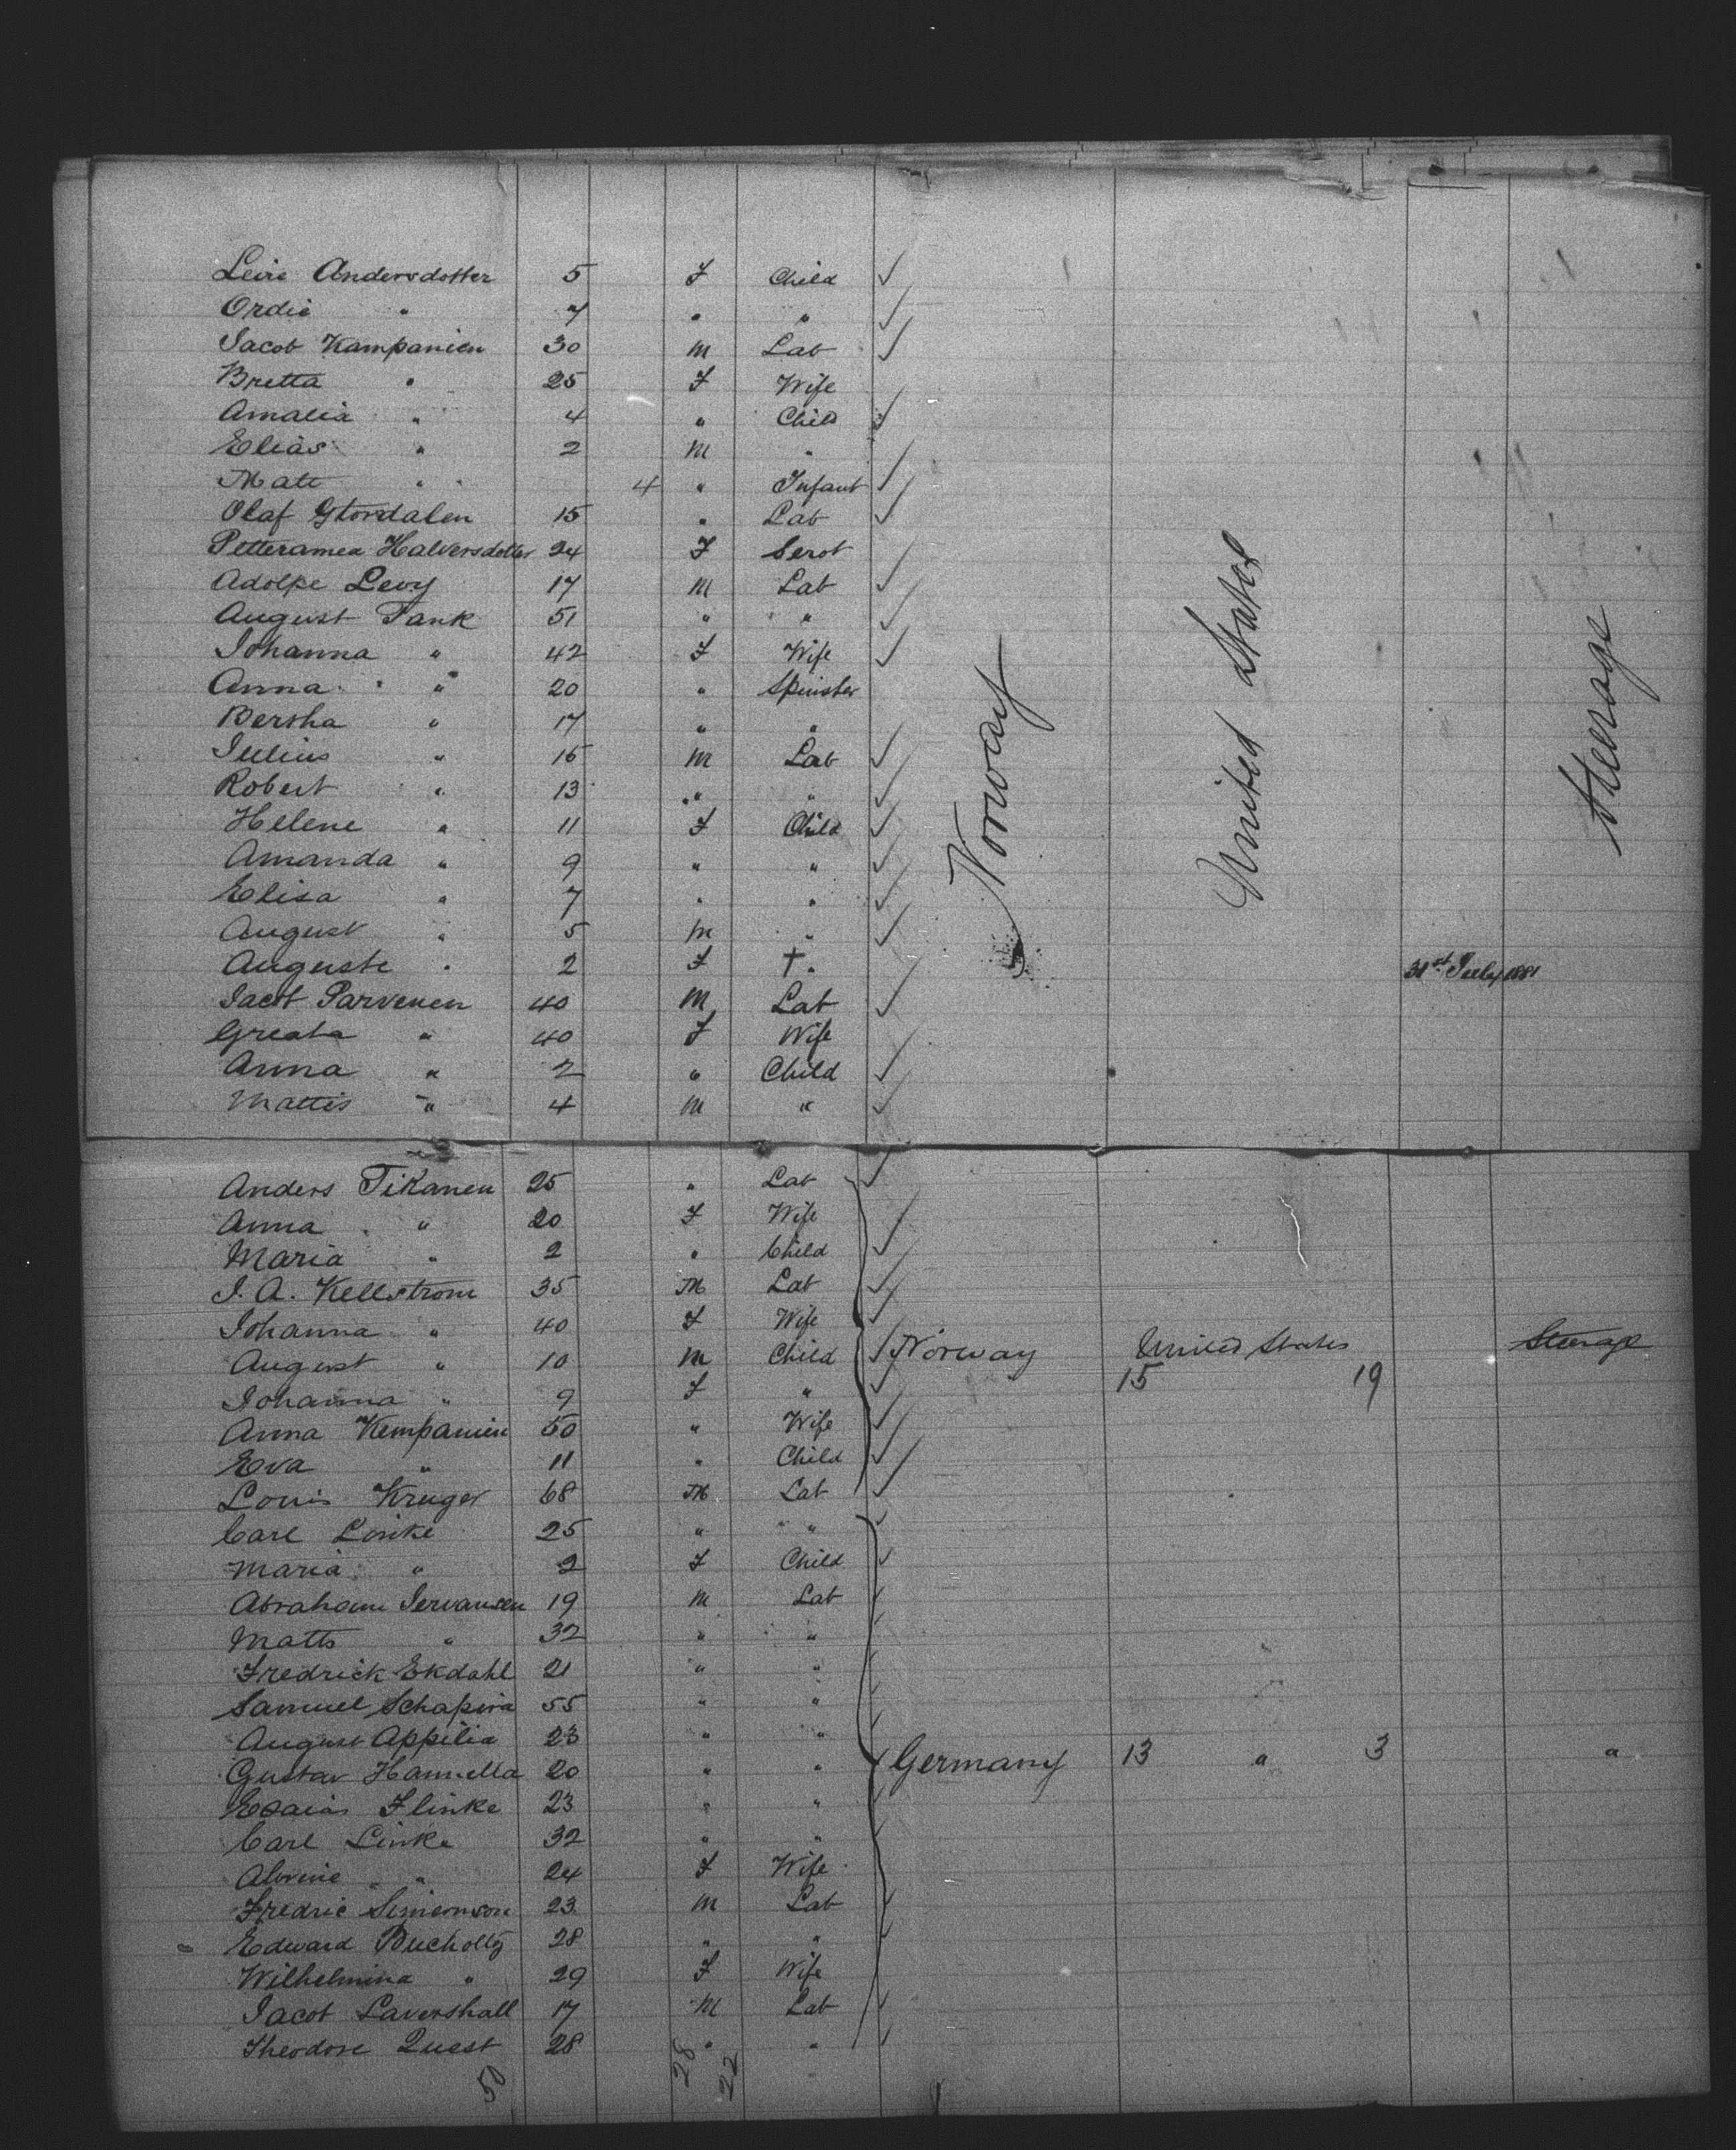 Leire Andersdotter 5 F Child ✓
Ordie " 7 " " ✓
Jacob Kampanien 30 M Lab ✓
Bretta " 25 F Wife
Amalia " 4 " Child ✓
Elias " 2 M "
Matt " 4 " Infant ✓
Olaf Gtordalen 15 " Lab ✓
Petteramea Halversdotter 24 F Servt
Adolpe Levy 17 M Lab ✓
August Tank 51 " " ✓
Johanna " 42 F Wife ✓
Anna " 20 " Spinster
Bertha " 17 " "
Julius " 15 M Lab ✓
Robert " 13 " " ✓
Helene " 11 F Child ✓
Amanda " 9 " " ✓
Elisa " 7 " " ✓
August " 5 M " ✓
Auguste " 2 F †. 31st July 1881
Jacob Parvenen 40 M Lab ✓
Greata " 40 F Wife
Anna " 2 " Child ✓
Mattis " 4 M " ✓
Norway
United States
Steerage
Anders Tikanen 25 " Lab ✓
Anna " 20 F Wife
Maria " 2 " Child ✓
J. A. Kellstrom 35 M Lab ✓
Johanna " 40 F Wife ✓
August " 10 M Child ✓ Norway United States Steerage
Johanna " 9 F " ✓ 15 19
Anna Kempanien 50 " Wife ✓
Eva " 11 " Child ✓
Louis Kruger 68 M Lab ✓
Carl Linke 25 " " ✓
Maria " 2 F Child ✓
Abraham Servansen 19 M Lab
Matts " 32 " "
Fredrick Ekdahl 21 " "
Samuel Schapira 55 " "
August Appilia 23 " "
Gustav Hannella 20 " " Germany 13 " 3 "
Esaias Flinke 23 " "
Carl Linke 32 " "
Alvine " 24 F Wife
Fredric Simonson 23 M Lab
Edward Bucholtz 28 " "
Wilhelmina " 29 F Wife
Jacob Lavershall 17 M Lab
Theodore Quest 28 " "
50 28 22